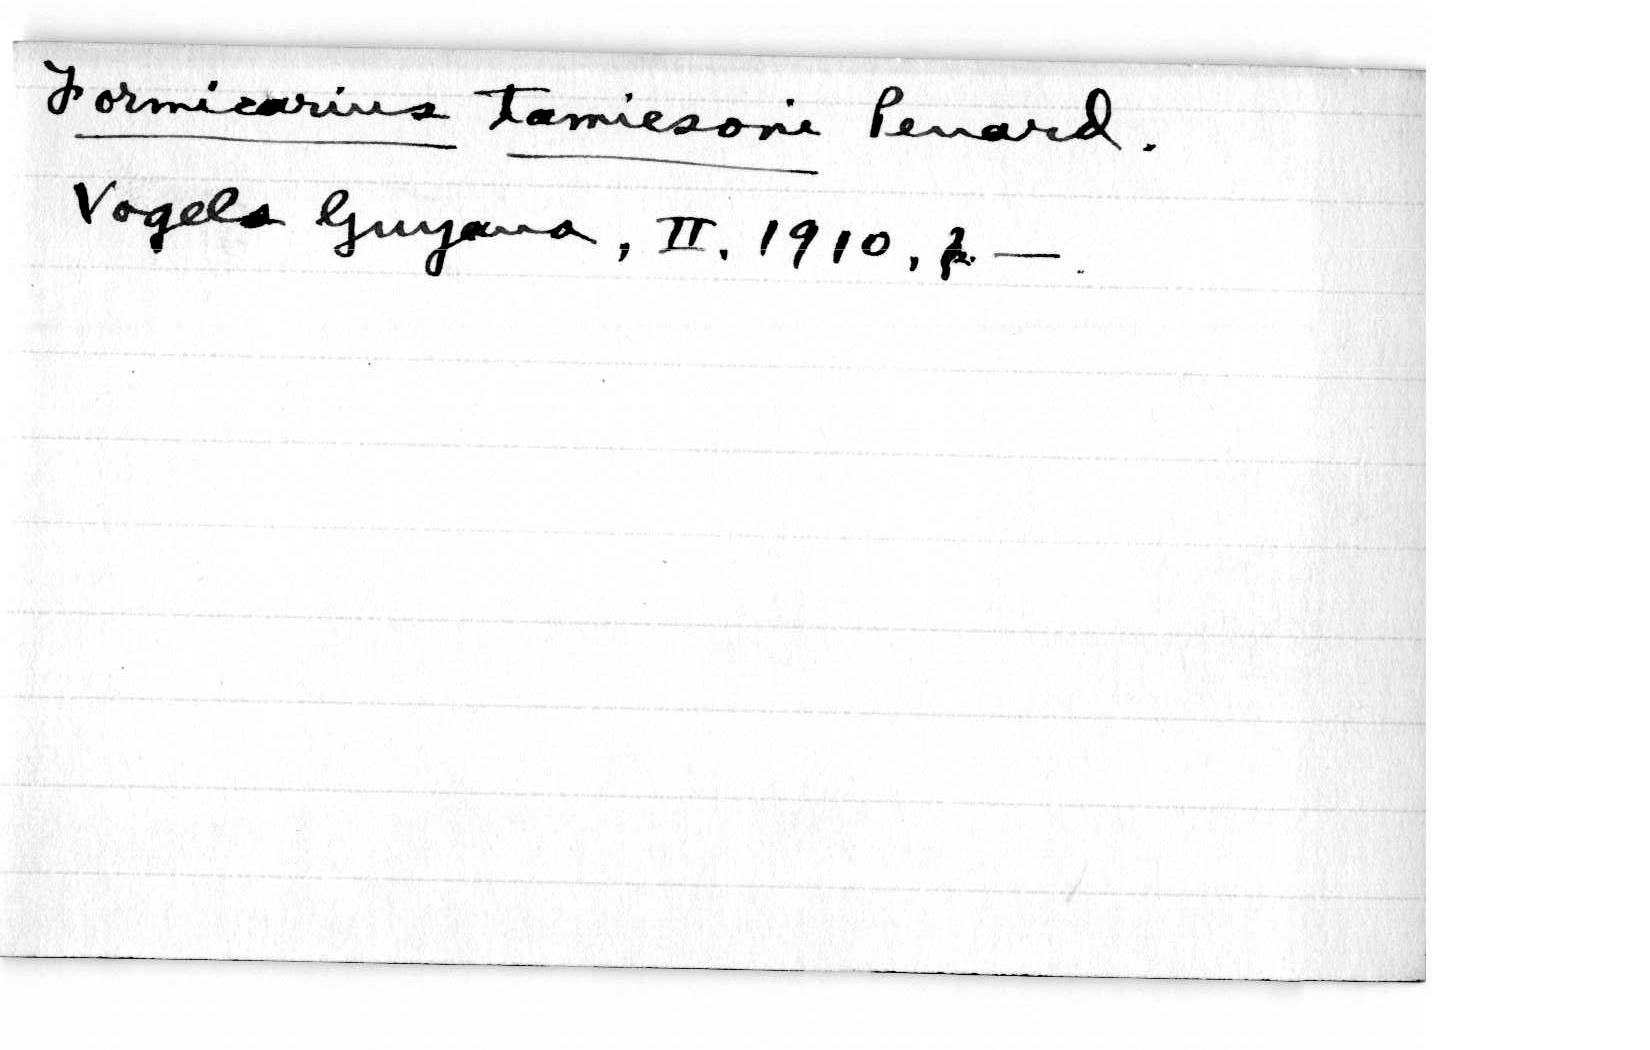 Formicarius Tamiesoni Penard.
Vogels Guyana, II, 1910, p. —.